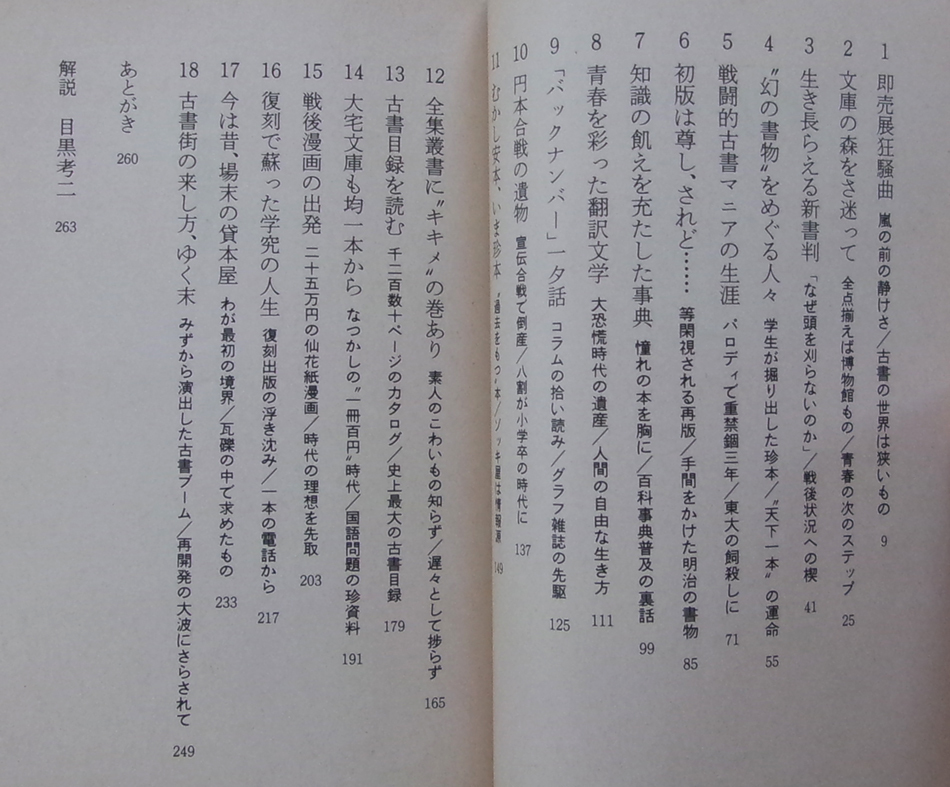 1 即売展狂騒曲 嵐の前の静けさ/古書の世界は狭いもの 9
2 文庫の森をさ迷って 全点揃えば博物館もの/青春の次のステップ 25
3 生き長らえる新書判 「なぜ頭を刈らないのか」/戦後状況への楔 41
4 〝幻の書物〟をめぐる人々 学生が掘り出した珍本/〝天下一本〟の運命 55
5 戦闘的古書マニアの生涯 パロディで重禁錮三年/東大の飼殺しに 71
6 初版は尊し、されど…… 等閑視される再版/手間をかけた明治の書物 85
7 知識の飢えを充たした事典 憧れの本を胸に/百科事典普及の裏話 99
8 青春を彩った翻訳文学 大恐慌時代の遺産/人間の自由な生き方 111
9 「バックナンバー」一夕話 コラムの拾い読み/グラフ雑誌の先駆 125
10 円本合戦の遺物 宣伝合戦て倒産/八割が小学卒の時代に 137
11 むかし安本、いま珍本 〝過去をもつ〟本/ゾッキ屋は情報源 149
12 全集叢書に〝キキメ〟の巻あり 素人のこわいもの知らず/遅々として捗らず 165
13 古書目録を読む 千二百数十ページのカタログ/史上最大の古書目録 179
14 大宅文庫も均一本から なつかしの〝一冊百円〟時代/国語問題の珍資料 191
15 戦後漫画の出発 二十五万円の仙花紙漫画/時代の理想を先取 203
16 復刻で蘇った学究の人生 復刻出版の浮き沈み/一本の電話から 217
17 今は昔、場末の貸本屋 わが最初の境界/瓦礫の中で求めたもの 233
18 古書街の来し方、ゆく末 みずから演出した古書ブーム/再開発の大波にさらされて 249
あとがき 260
解説 目黒考二 263